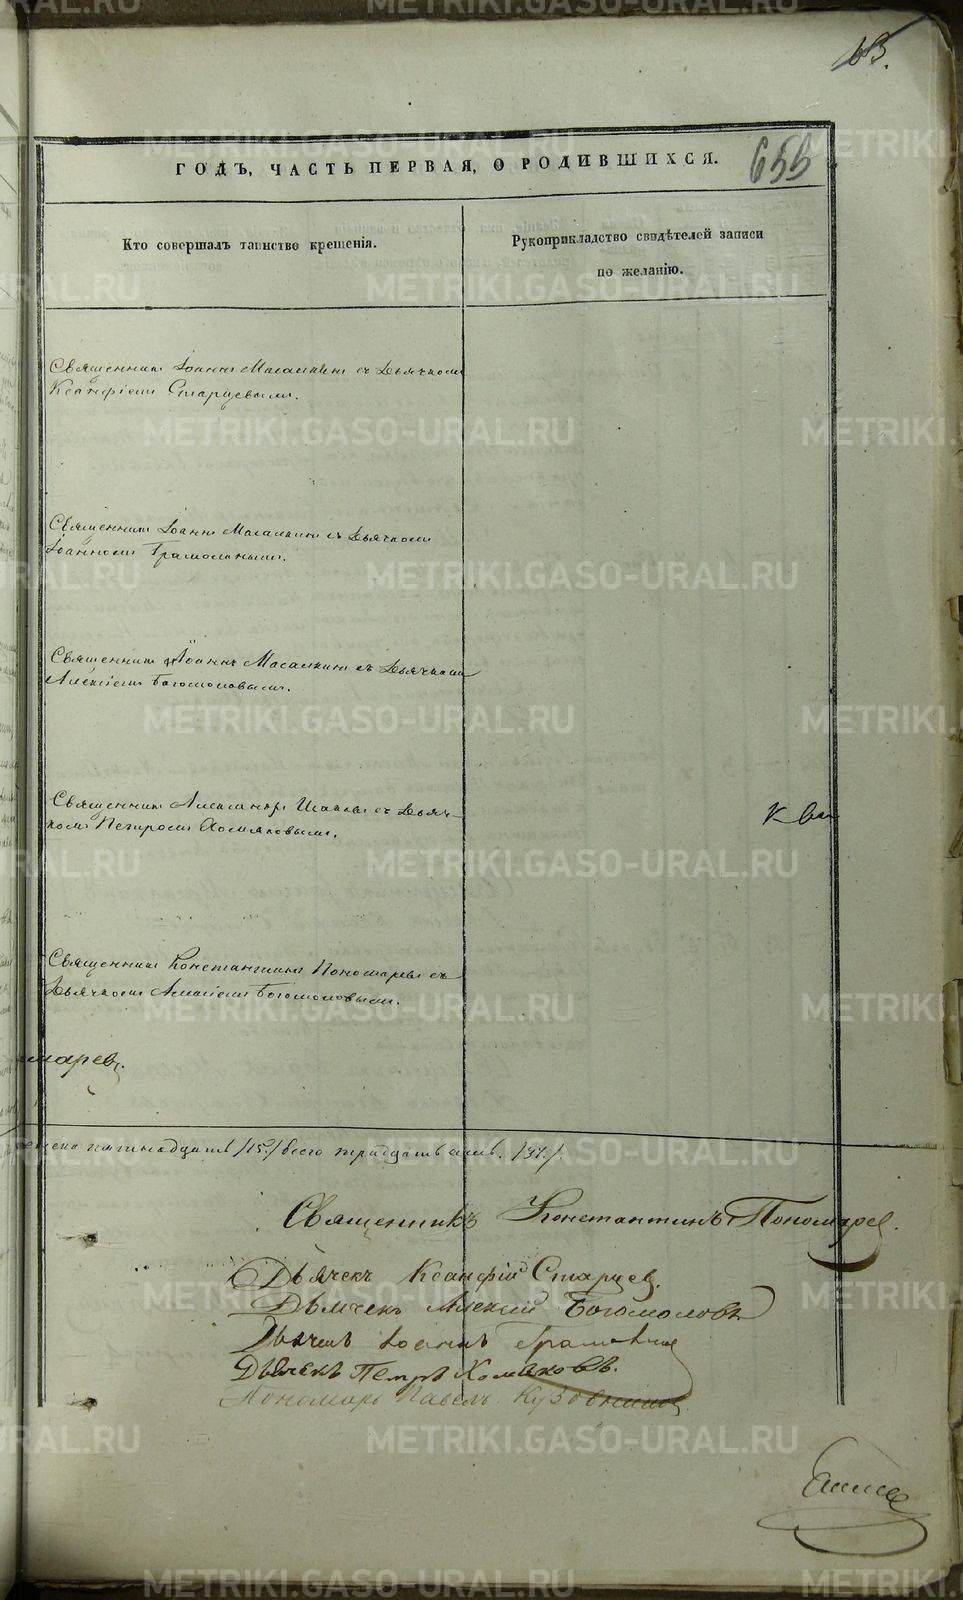 63.
ГОДЪ, ЧАСТЬ ПЕРВАЯ, О РОДИВШИХСЯ. 655
Кто совершалъ таинство крещенія.
Рукоприкладство свидѣтелей записи
по желанію.
Священникъ Іоаннъ Масалкинъ съ Дьячкомъ
Ксанфіемъ Старцевымъ.
Священникъ Іоаннъ Масалкинъ съ Дьячкомъ
Іоанномъ
Священникъ Іоаннъ Масалкинъ съ Дьячкомъ
Алексіемъ Богомоловымъ.
Священникъ Александръ съ Дьяч-
комъ Петромъ Хомяковымъ.
Священникъ Константинъ Пономаревъ съ
Дьячкомъ Алексіемъ Богомоловымъ.
пятнадцать /15./ всего тридцать
Священникъ Константинъ Пономарев.
Дьячекъ Ксанфій Старцев.
Дьячекъ Алексій Богомоловъ
Дьячекъ Іоаннъ
Дьячекъ Петръ Хомяковъ.
Пономарь Павелъ
METRIKI.GASO-URAL.RU